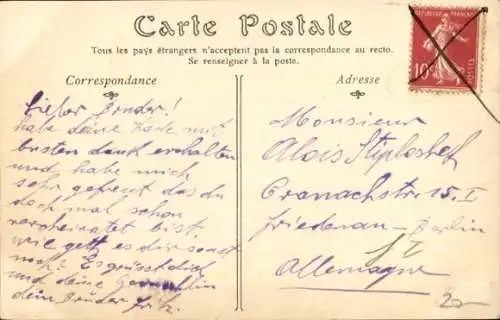 Carte Postale
Tous les pays étrangers n'acceptent pas la correspondance au recto.
Se renseigner à la poste.
Correspondance
Adresse
RÉPUBLIQUE FRANÇAISE
10
POSTES
Lieber Bruder!
habe deine Karte mit
besten dank erhalten
und habe mich
sehr gefreut das du
doch mal schon
verheiratet bist.
wie geht es dir sonst
noch? Es grüsst dich
und deine Gemahlin
dein Brüder Fritz.
Monsieur
Alois
Cranachstr. 15. I
Friedenau-Berlin
Allemagne
20